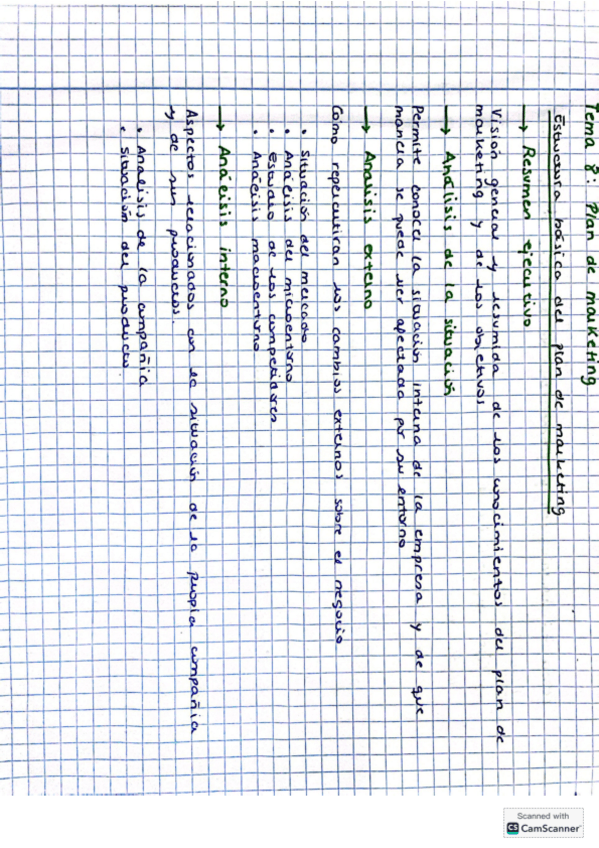 Tema 8: Plan de marketing
Estructura básica del plan de marketing
→ Resumen ejecutivo
Visión general y resumida de los conocimientos del plan de
marketing y de los objetivos
→ Análisis de la situación
Permite conocer la situación interna de la empresa y de que
manera se puede ver afectada por su entorno
→ Analisis externo
Cómo repercutiran los cambios externos sobre el negocio
• Situación del mercado
• Análisis del microentorno
• estudio de los competidores
• Análisis macroentorno
→ Análisis interno
Aspectos relacionados con la situación de la propia compañia
y de sus productos.
• Analisis de la compañia
• Situación del producto.
Scanned with
CS CamScanner